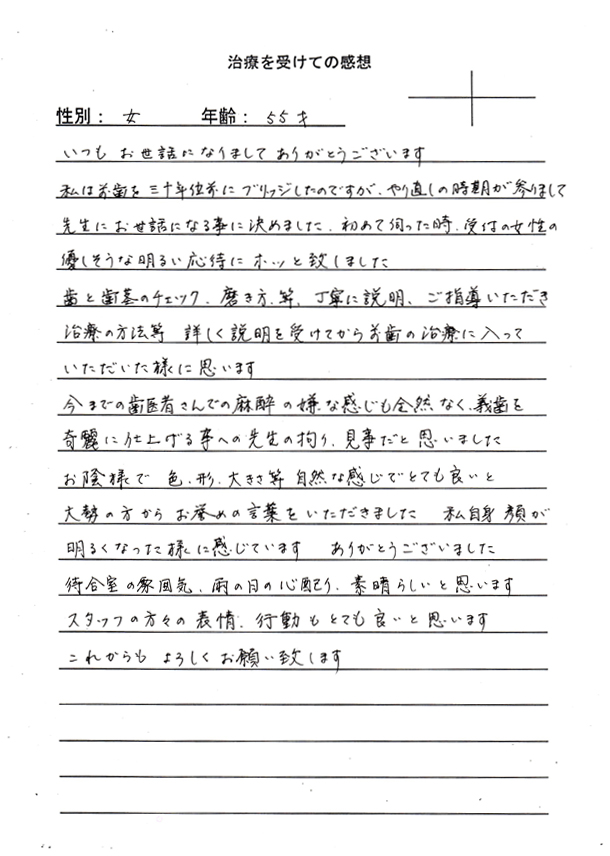 治療を受けての感想
性別： 女 年齢： 55才
いつも お世話になりまして ありがとうございます
私はお歯を三十年位前に ブリッジしたのですが、やり直しの時期が参りまして
先生に お世話になる事に決めました、初めて伺った時、受付の女性の
優しそうな明るい応待に ホッと致しました
歯と歯茎のチェック、磨き方、等、丁寧に説明、ご指導いただき
治療の方法等 詳しく説明を受けてからお歯の治療に入って
いただいた様に思います
今までの歯医者さんでの麻酔の嫌な感じも全然なく、義歯を
奇麗に仕上げる事への先生の拘り、見事だと思いました
お陰様で 色、形、大きさ等 自然な感じでとても良いと
大勢の方から お誉めの言葉をいただきました 私自身 顔が
明るくなった様に感じています ありがとうございました
待合室の雰囲気、雨の日の心配り、素晴らしいと思います
スタッフの方々の表情、行動もとても良いと思います
これからも よろしくお願い致します